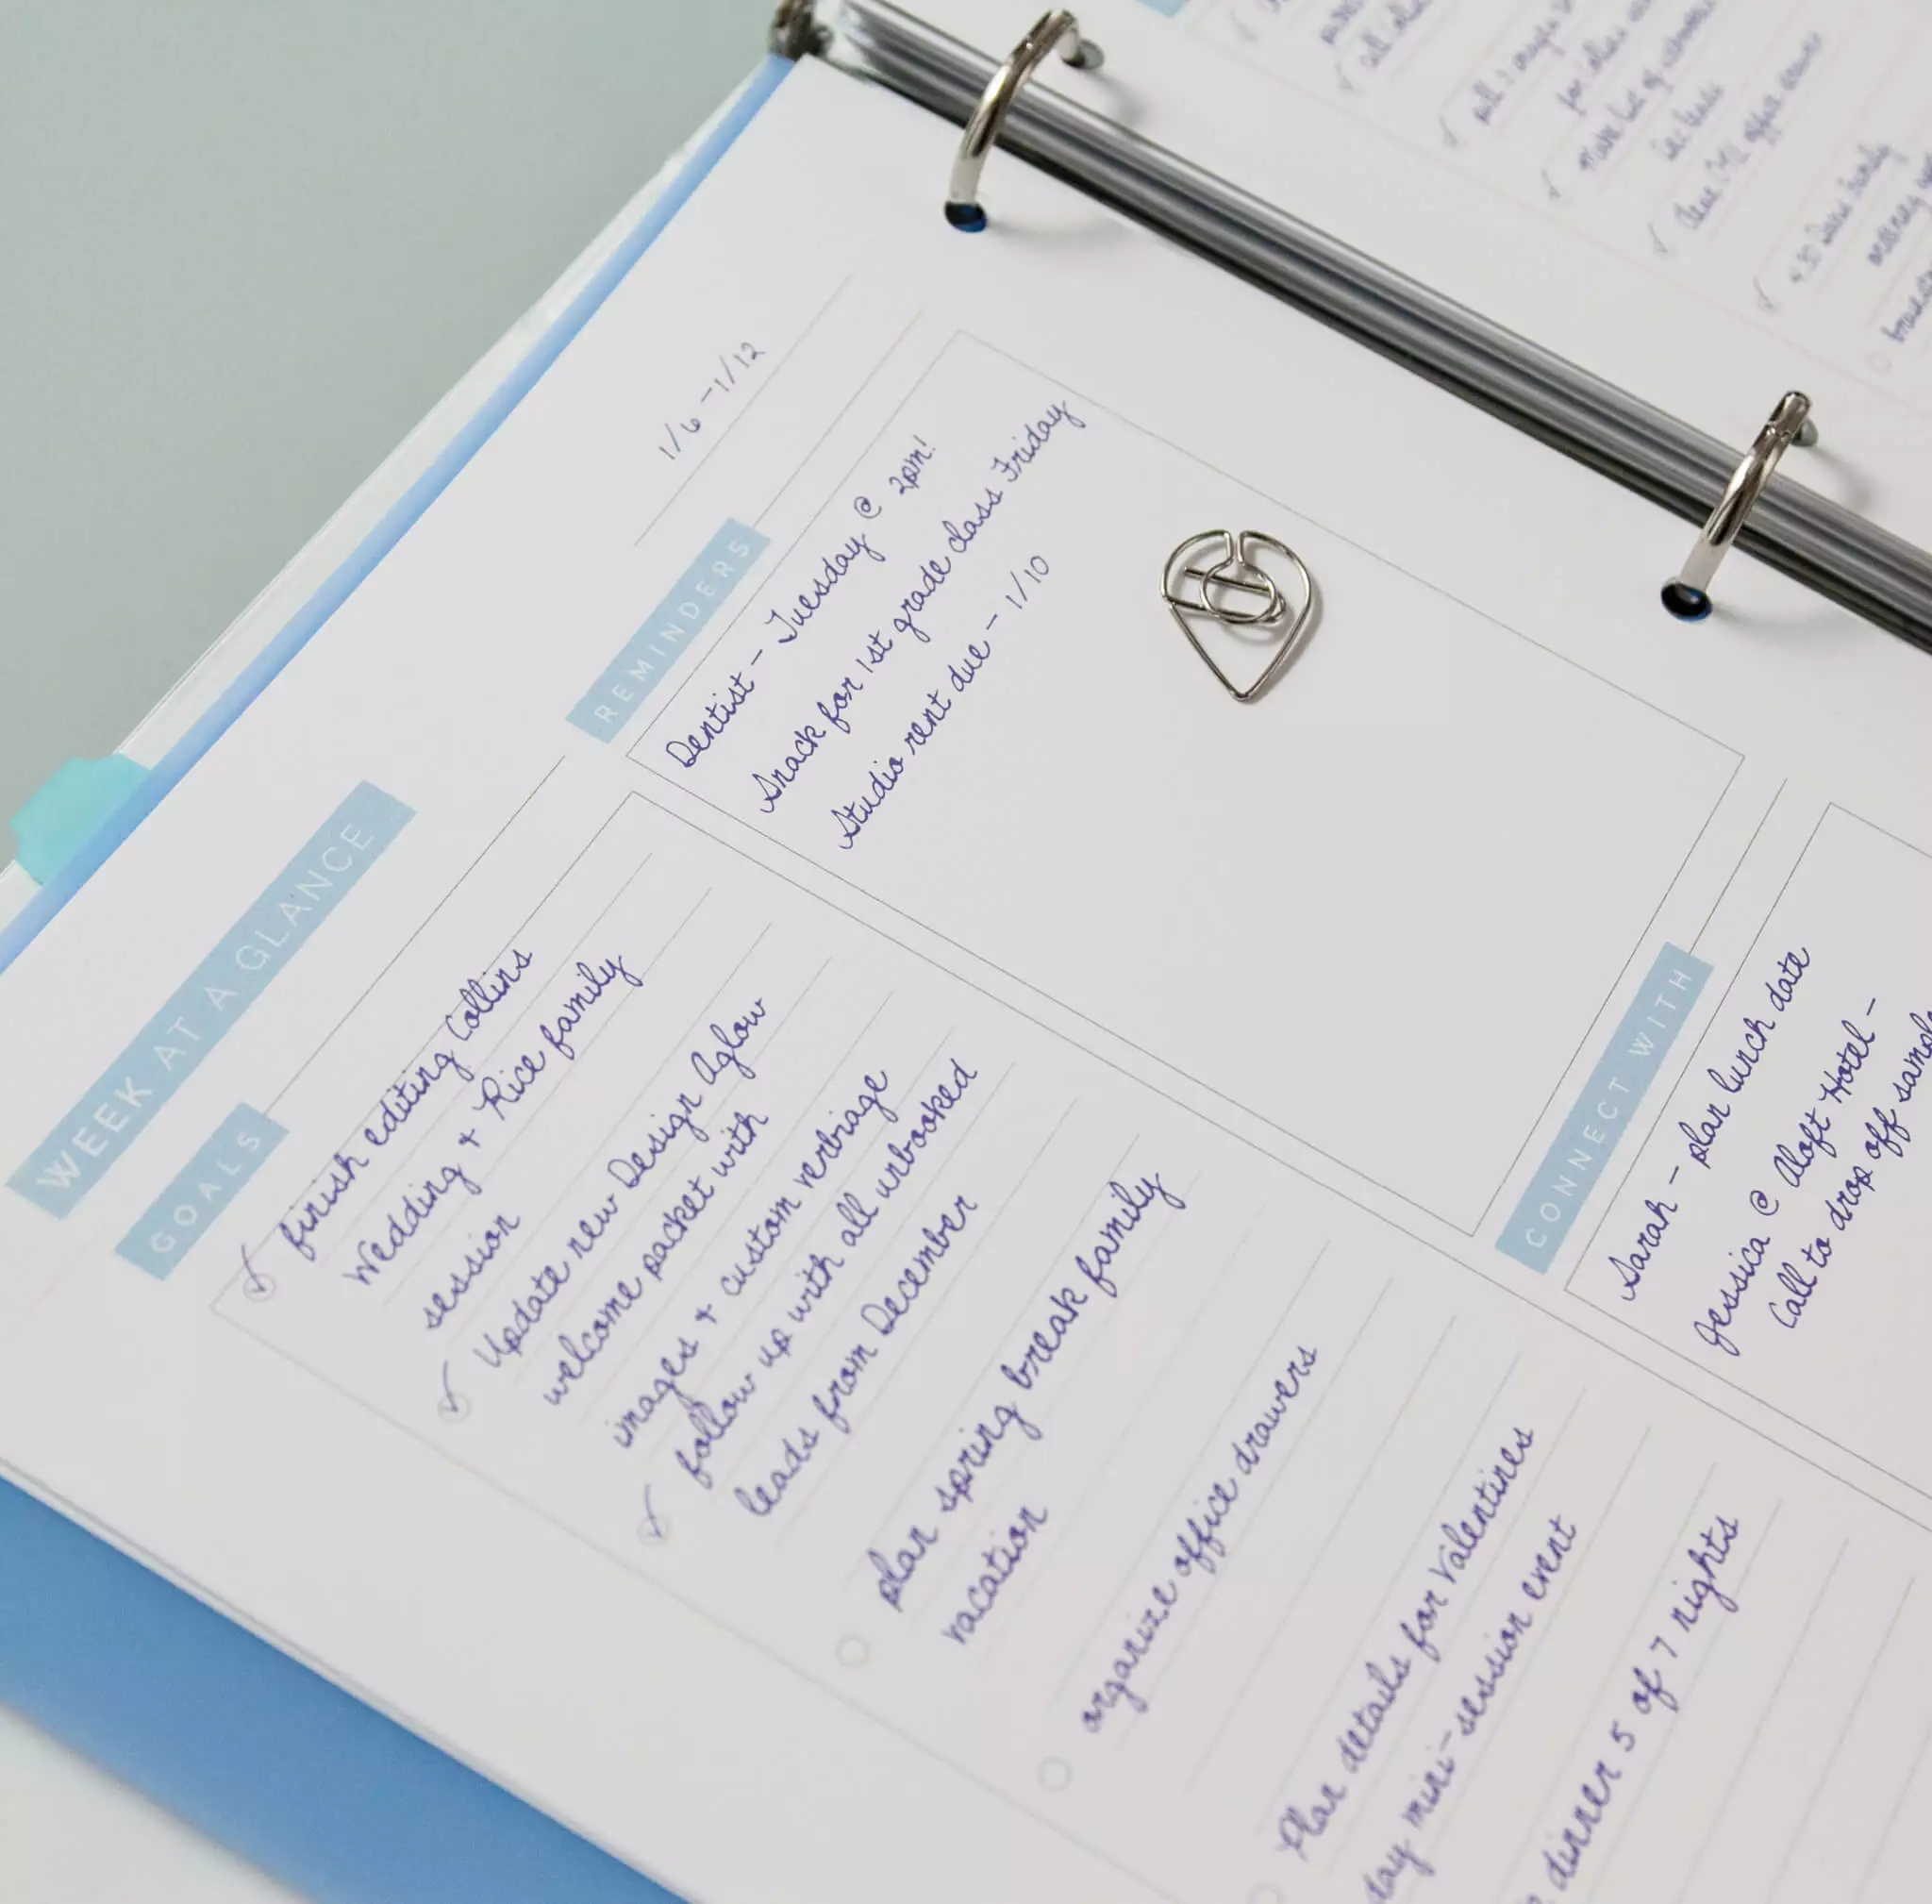 WEEK AT A GLANCE
1/6 - 1/12
REMINDERS
Dentist - Tuesday @ 2pm!
Snack for 1st grade class Friday
Studio rent due - 1/10
GOALS
finish editing Collins
Wedding + Rice family
session
Update new Design Aglow
welcome packet with
images + custom verbiage
follow up with all unbooked
leads from December
plan spring break family
vacation
organize office drawers
Plan details for Valentines
day mini-session event
dinner 5 of 7 nights
CONNECT WITH
Sarah - plan lunch date
Jessica @ Aloft Hotel -
Call to drop off